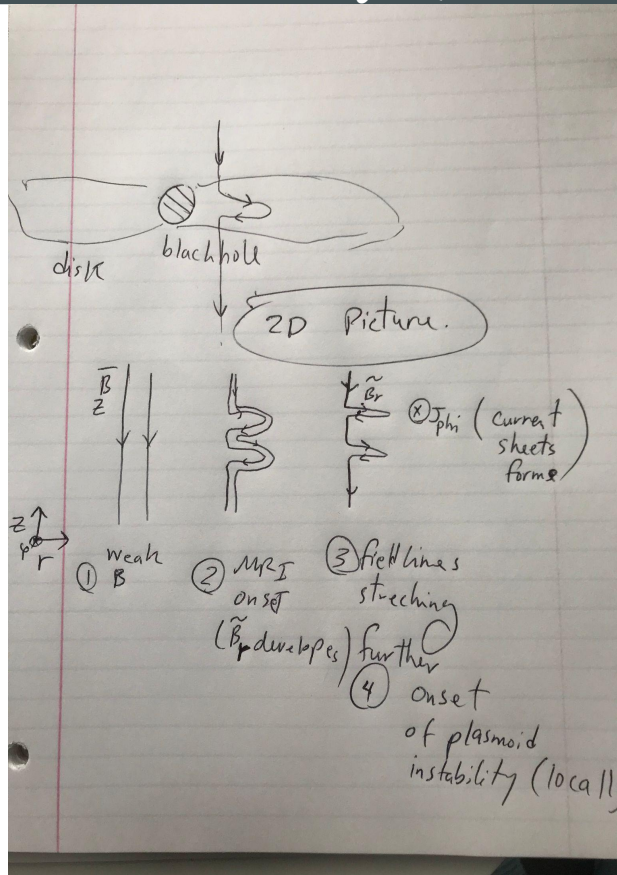 disk
blackhole
2D Picture.
B̅
Z
B̃r
ⓧ Jphi (current
sheets
forms)
Z
φ
r
① weak
B
② MRI
onset
(B̃r developes)
③ field lines
streching
further
④ onset
of plasmoid
instability (locall